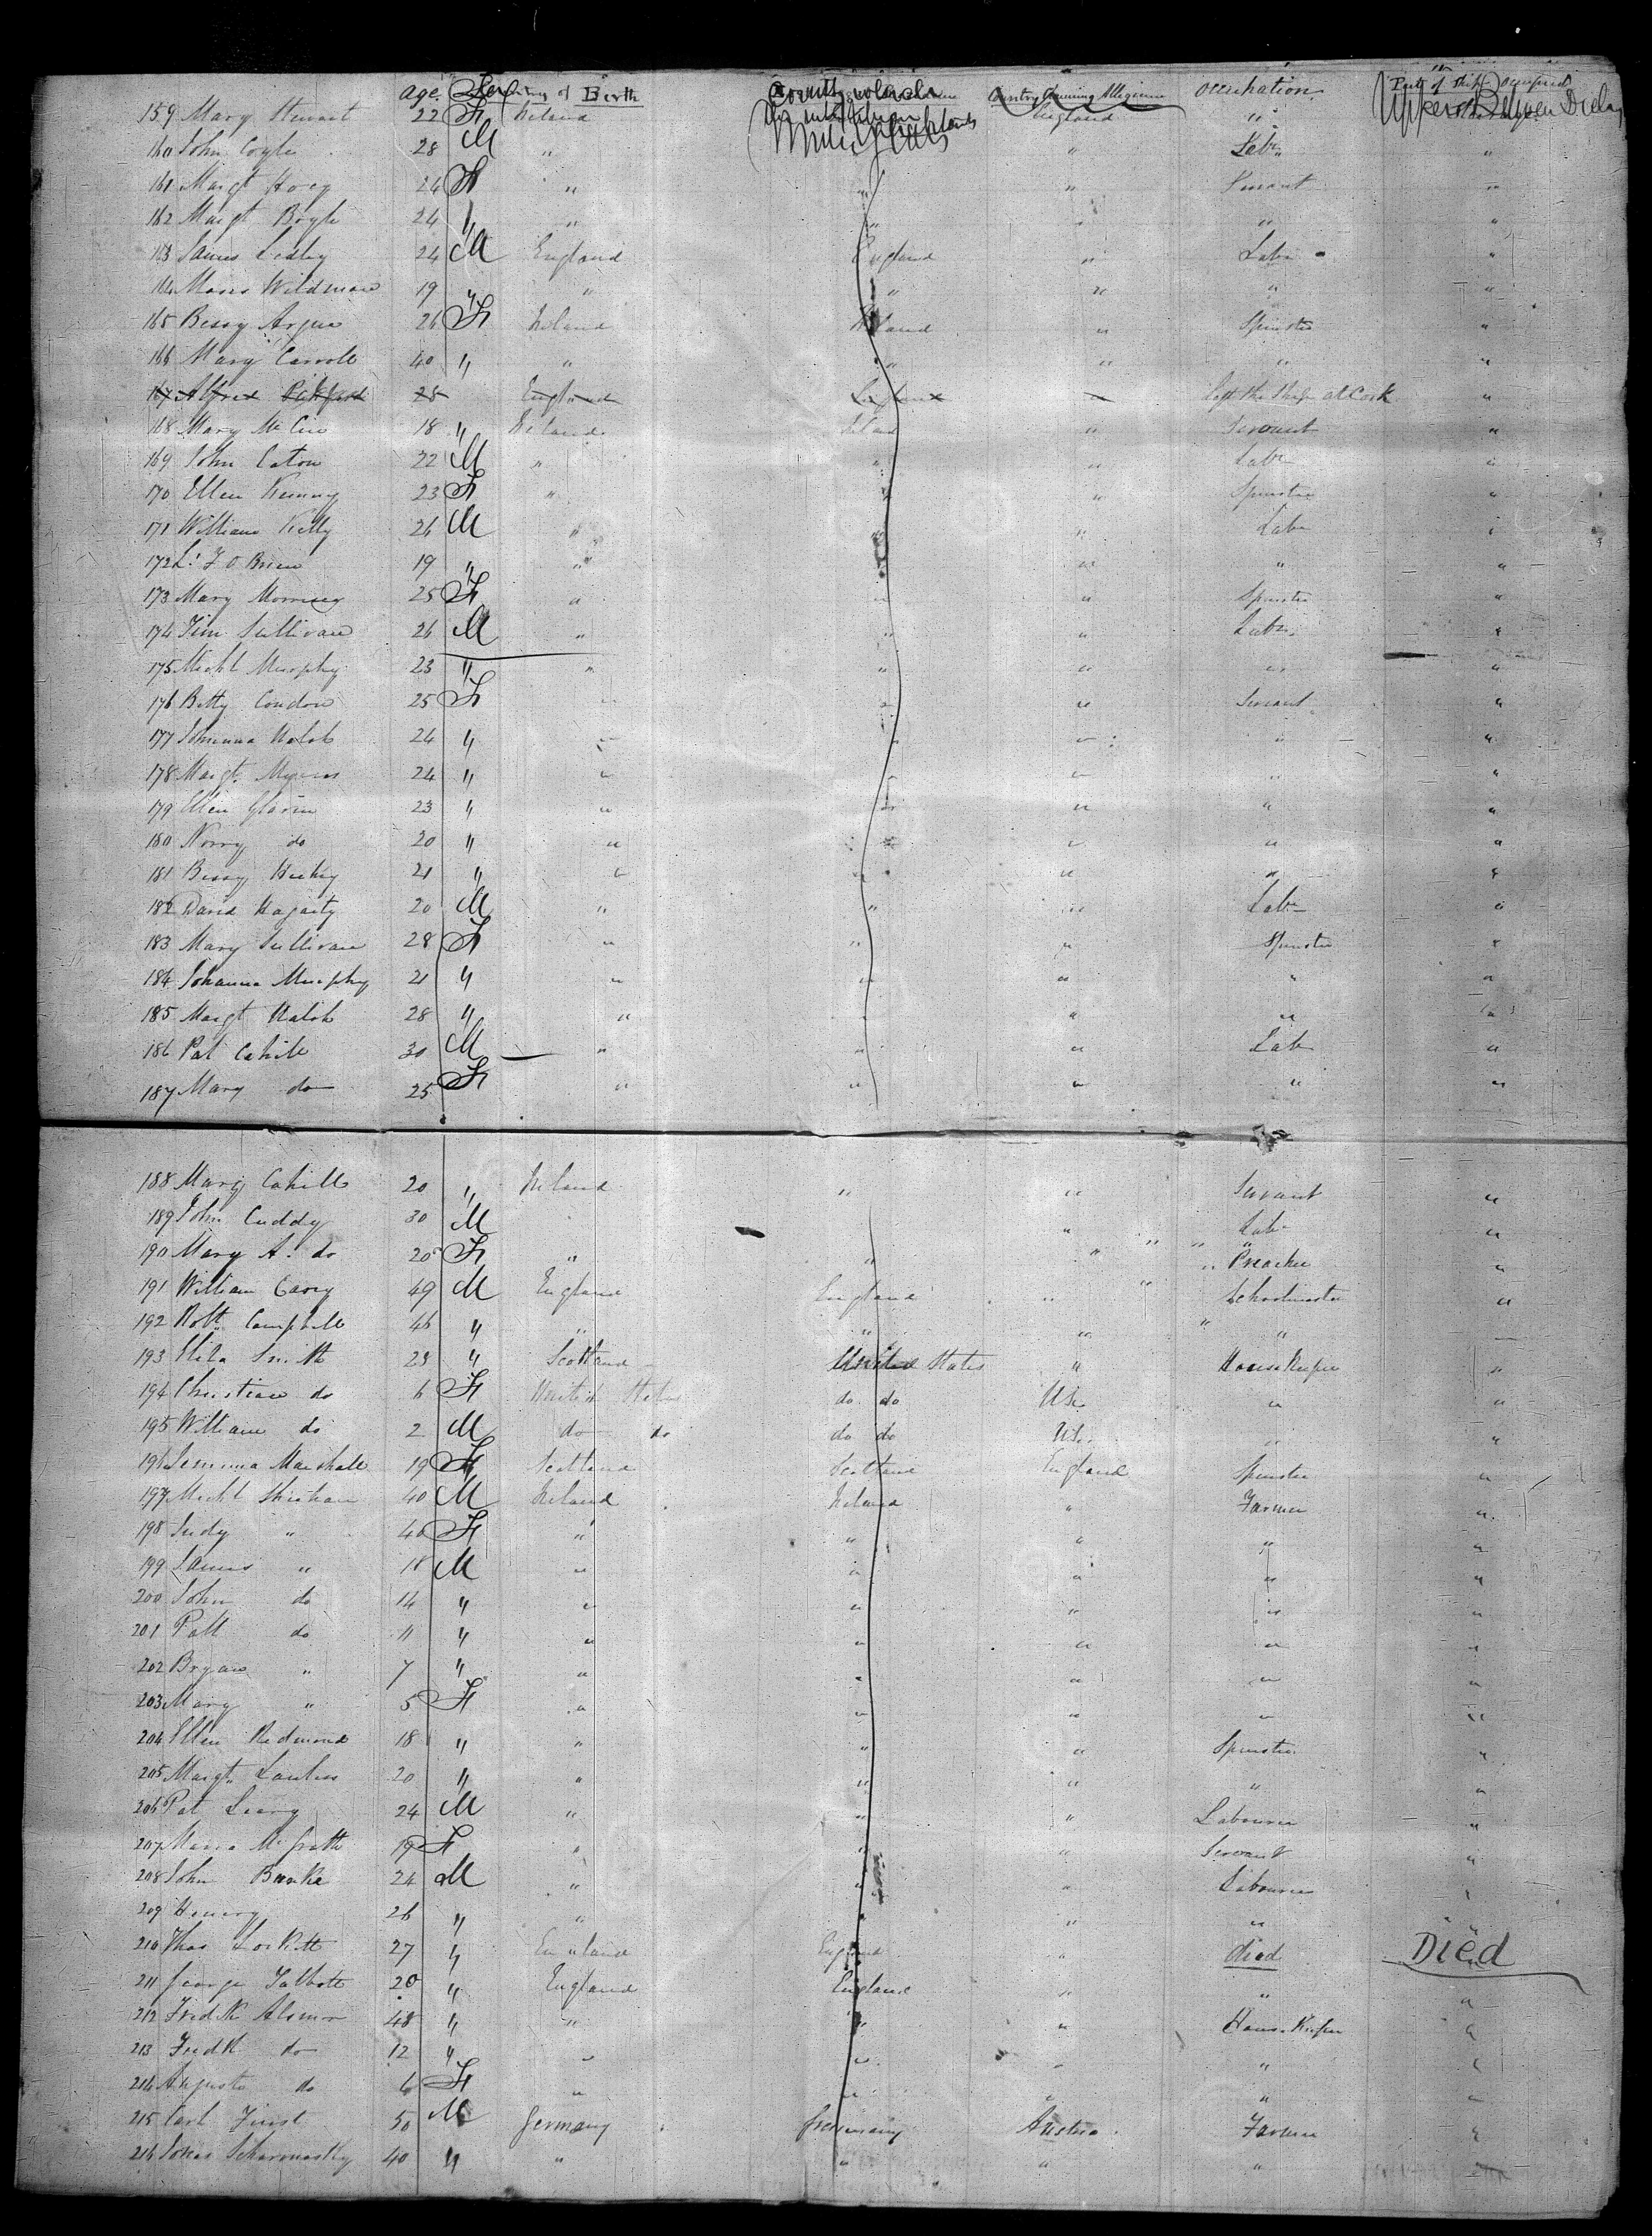 age. Sex Country of Birth Country Owning Allegiance Occupation Part of Ship Occupied
159 Mary Stewart 22 F Ireland England "
160 John Coyle 28 M " " Labr "
161 Margt Hoey 24 F " " " Servant "
162 Margt Boyle 24 " " " " " "
163 James Lesley 24 M England England " Labr "
164 Moses Wildman 19 " " " " " "
165 Bessy Argue 26 F Ireland Ireland " Spinster "
166 Mary Carroll 40 " " " " " "
167 Alfred Pickford 25 England England " left the Ship at Cork "
168 Mary McCue 18 " Ireland Ireland " Servant "
169 John Eaton 22 M " " " Labr "
170 Ellen Kenny 23 F " " " Spinster "
171 William Kelly 26 M " " " Labr "
172 O Brien 19 " " " " " "
173 Mary Morrissey 25 F " " " Spinster "
174 Tim Sullivan 26 M " " " Labr "
175 Michl Murphy 23 " " " " " "
176 Betty Condon 25 F " " " Servant "
177 Johanna Walsh 24 " " " " " "
178 Margt Myers 24 " " " " " "
179 Ellen Glavin 23 " " " " " "
180 Norry do 20 " " " " " "
181 Bessy 21 " " " " " "
182 David Hagarty 20 M " " " Labr "
183 Mary Sullivan 28 F " " " Spinster "
184 Johanna Murphy 21 " " " " " "
185 Margt Walsh 28 " " " " " "
186 Pat Cahill 30 M " " " Labr "
187 Mary do 25 F " " " " "
188 Mary Cahill 20 " Ireland " " Servant "
189 John Cuddy 30 M " Labr "
190 Mary A. do 20 F " " " "
191 William Carey 49 M England England " Preacher "
192 Robt Campbell 46 " " " " Schoolmaster
193 Eliza Smith 23 " Scotland United States " House Keeper "
194 Christian do 6 F United States do do US. " "
195 William do 2 M do do do do US. " "
196 Jemima Marshall 19 F Scotland Scotland England Spinster "
197 Michl Sheehan 40 M Ireland Ireland " Farmer "
198 Judy " 40 F " " " " "
199 James " 18 M " " " " "
200 John do 14 " " " " " "
201 Patt do 11 " " " " " "
202 Bryan " 7 " " " " " "
203 Mary " 5 F " " " " "
204 Ellen Redmond 18 " " " " Spinster "
205 Margt Lawless 20 " " " " " "
206 Pat Leary 24 M " " " Labourer "
207 Maria McGrath 19 F " " " Servant "
208 John Burke 24 M " " " Labourer "
209 Henry 26 " " " " " "
210 Thos Lockett 27 " England England " died Died
211 George Talbott 20 " England England " " "
212 Fredk 48 " " " " House Keeper "
213 Fredk do 12 " " " " " "
214 Augusta do 6 F " " " " "
215 Carl Furst 50 M Germany Germany Austria Farmer "
216 40 " " " " "